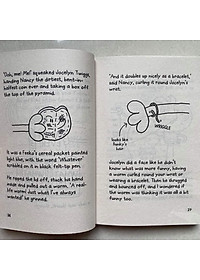 "Ooh, me! Me!" squeaked Jocelyn Twiggs,
handing Nancy the dirtiest, bent-in-
halfest coin ever and taking a box off
the top of the pyramid.
It was a cereal packet painted
light blue, with the word "Whatever"
scribbled on it in black felt-tip pen.
He ripped the lid off, stuck his hand
inside and pulled out a worm. "A real-
life worm! Just what I've always
wanted!" he grinned.
36
"And it doubles up nicely as a bracelet,"
said Nancy, curling it round Jocelyn's
wrist.
WRIGGLE
looks like
hair
Jocelyn did a face like he didn't
know what was more funny, having a
worm curled round your wrist or
wearing a bracelet. Then he shrugged
and bounced off, and I wondered if
the worm was thinking it was all a bit
funny too.
37